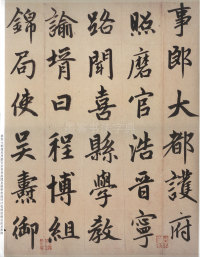 事郎大都護府
照磨官浩晉寧
路聞喜縣學教
諭壻曰程博組
錦局使吳燾御